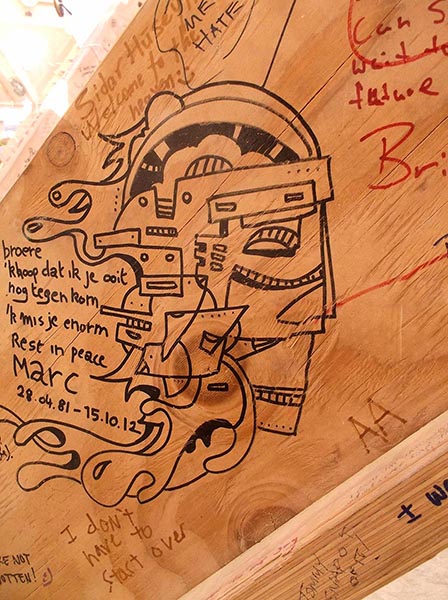 ME
HATE
Welcome to
heaven
Can
future
Bri
broere
'k hoop dat ik je ooit
nog tegen kom
'k mis je enorm
Rest in peace
Marc
28.04.81 - 15.10.12
AA
I don't
have to
start over
I W
RE NOT
OTTEN!